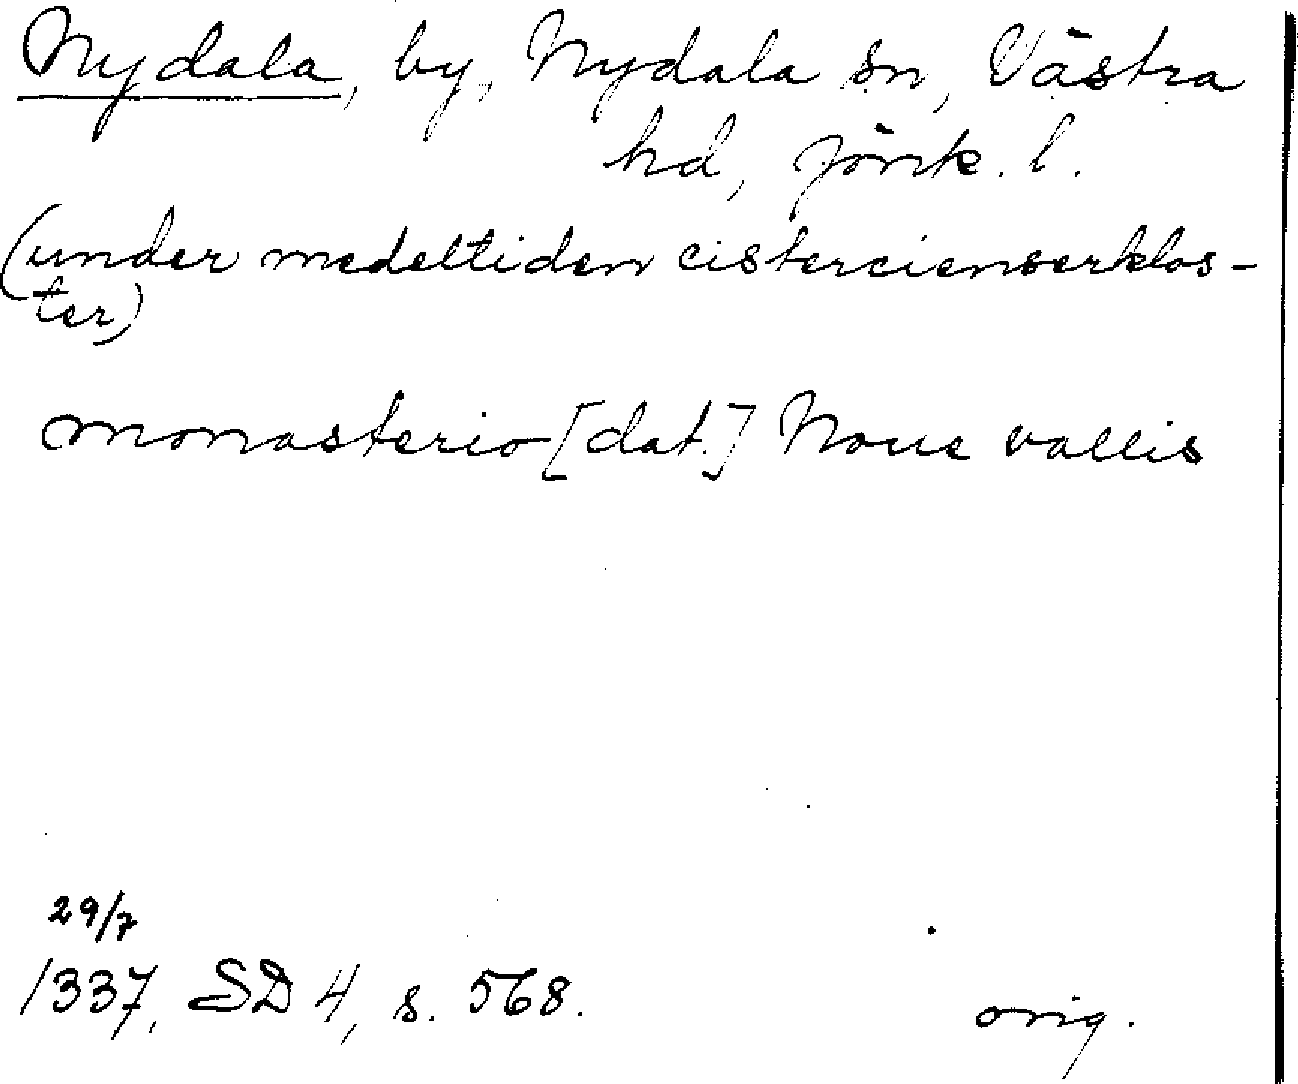 Nydala, by, Nydala sn, Västra
hd, Jönk. l.
(under medeltiden cistercienserklos-
ter)
monasterio [dat.] Noue vallis
29/7
1337, SD 4, s. 568.
orig.